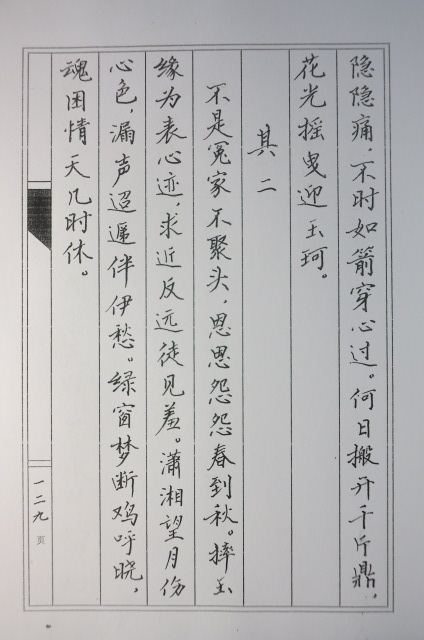 隐隐痛，不时如箭穿心过。何日搬开千斤鼎，
花光摇曳迎玉珂。
其二
不是冤家不聚头，恩恩怨怨春到秋。摔玉
缘为表心迹，求近反远徒见羞。潇湘望月伤
心色，漏声迢遞伴伊愁。绿窗梦断鸡呼晓，
魂困情天几时休。
一二九页